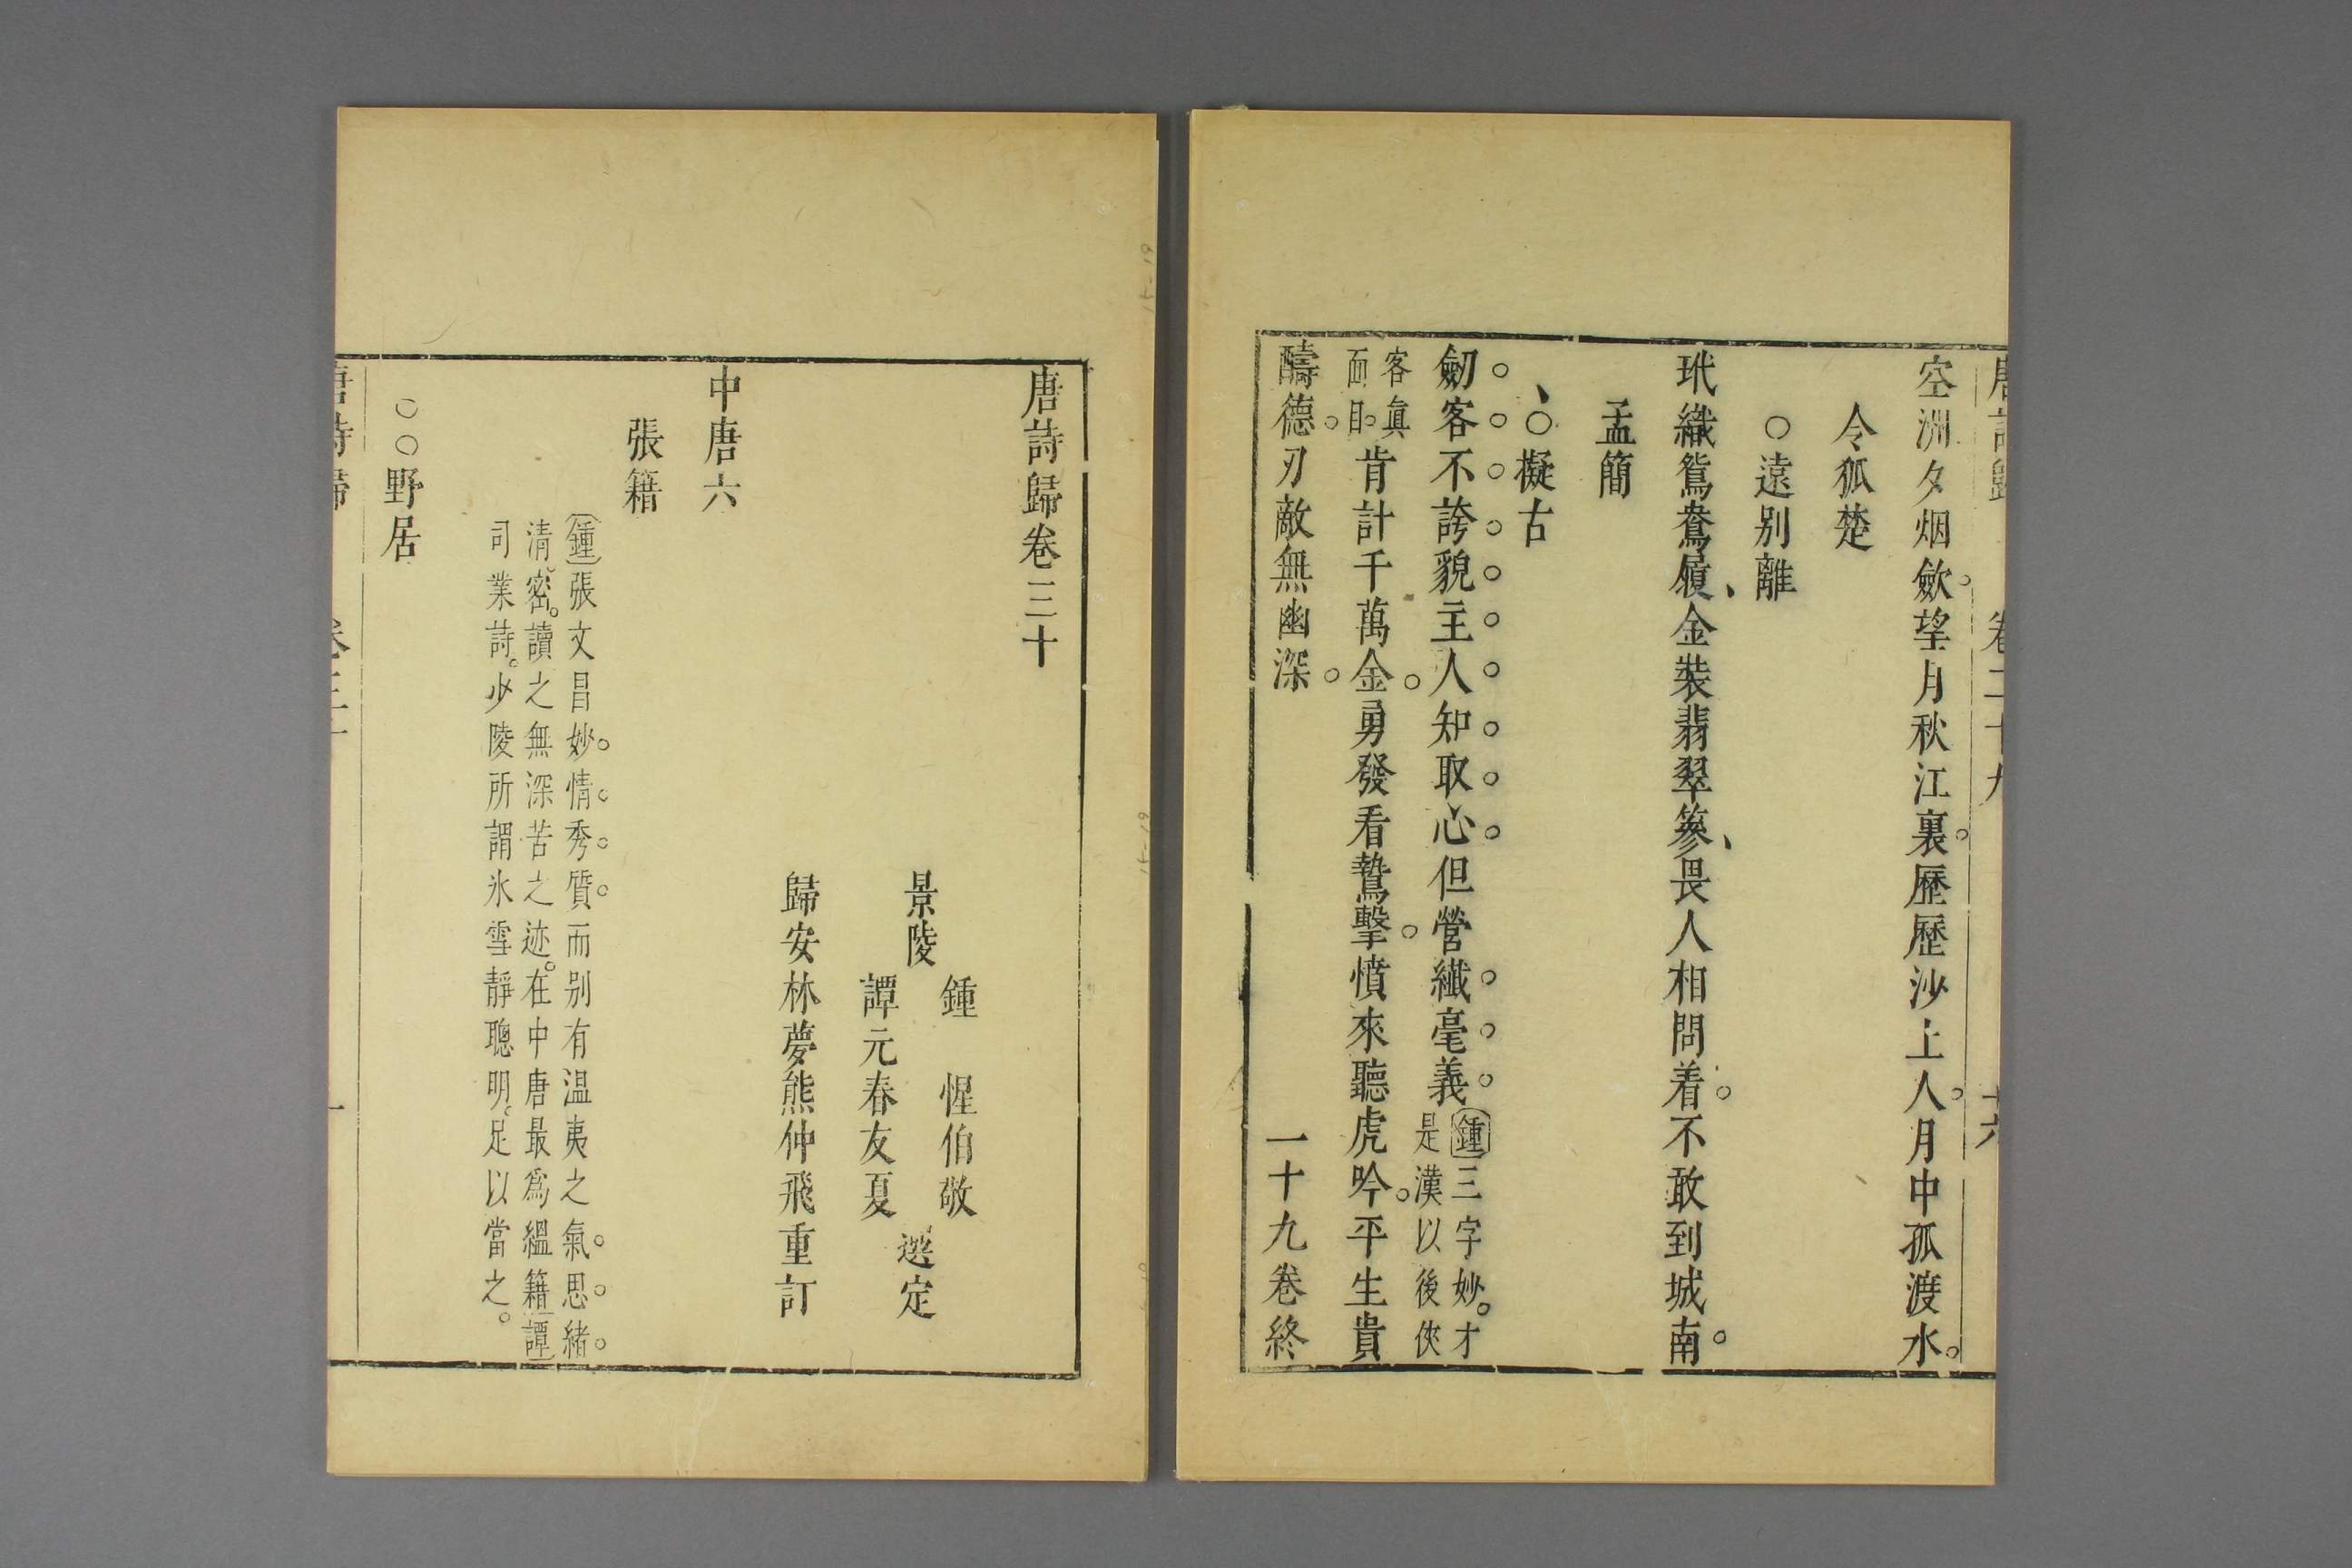 唐詩歸 卷二十九 十六
空洲夕烟歛望月秋江裏歷歷沙上人月中孤渡水
令狐楚
○遠別離
玳織鴛鴦履金裝翡翠篸畏人相問着不敢到城南
孟簡
○擬古
劒客不誇貌主人知取心但營纖毫義鍾三字妙才
是漢以後俠
客真
面目肯計千萬金勇發看鷙擊憤來聽虎吟平生貴
醻德刃敵無幽深 一十九卷終
唐詩歸卷三十
鍾 惺伯敬
景陵 選定
譚元春友夏
歸安林夢熊仲飛重訂
中唐六
張籍
鍾張文昌妙情秀質而別有温夷之氣思緒
清密讀之無深苦之迹在中唐最爲縕籍譚
司業詩少陵所謂氷雪靜聰明足以當之
○○野居
唐詩歸 卷三十 一